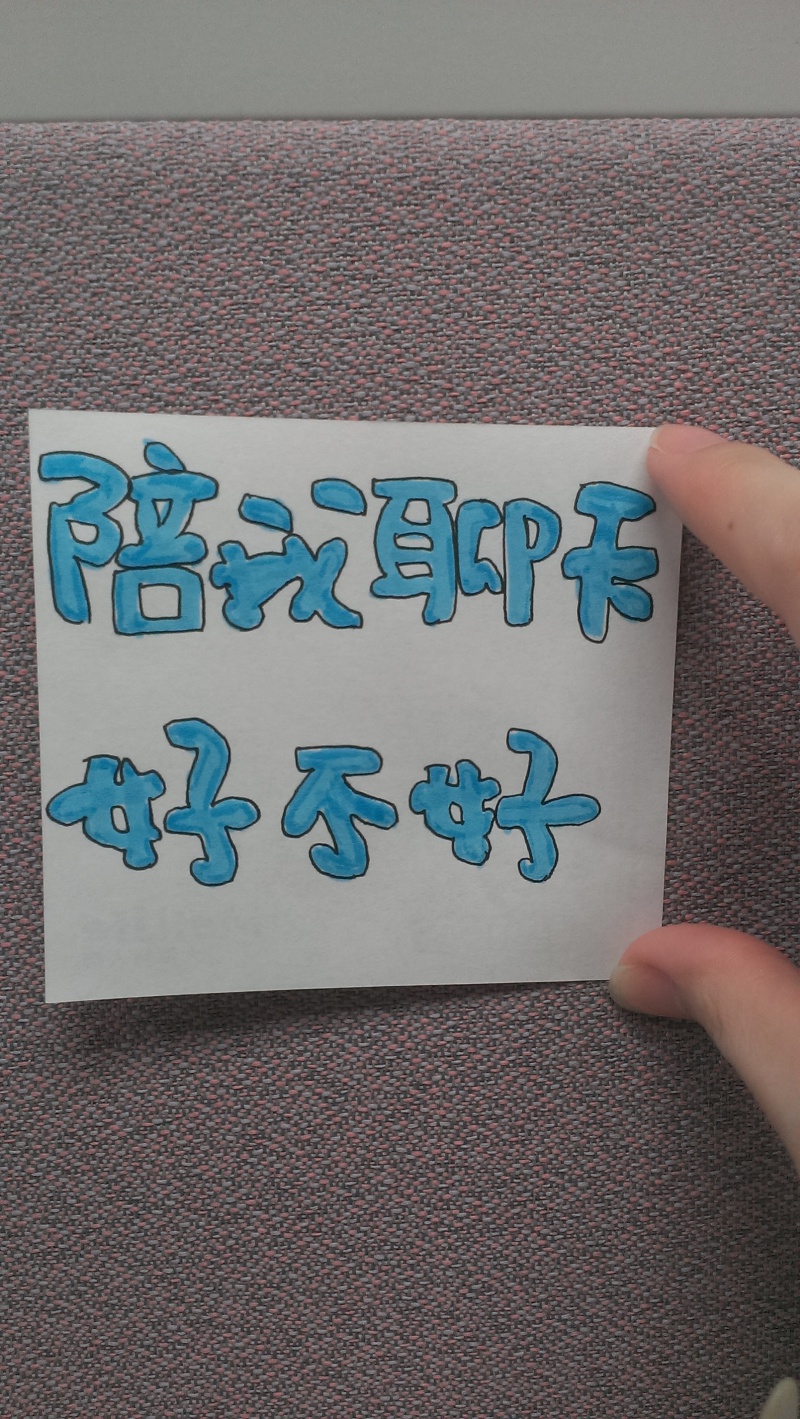 陪我聊天
好不好